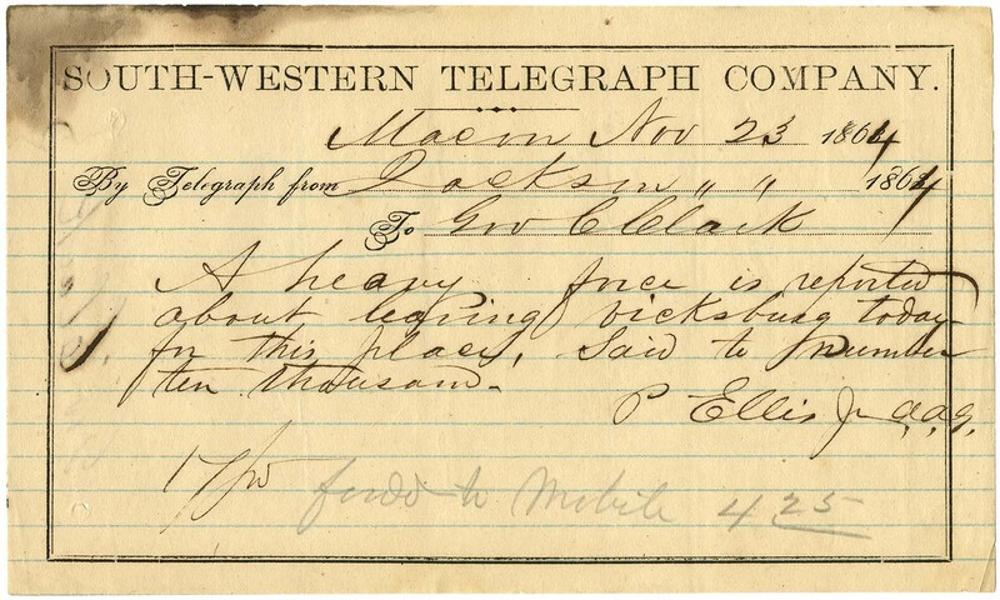 SOUTH-WESTERN TELEGRAPH COMPANY.
Macon Nov 23 1864
By Telegraph from Jackson " " 1864
To Gov C Clark
A heavy force is reported
about leaving Vicksburg today
for this place, Said to number
ten thousand.
P Ellis Jr a.a.g.
17/
forwd to Mobile 4 25